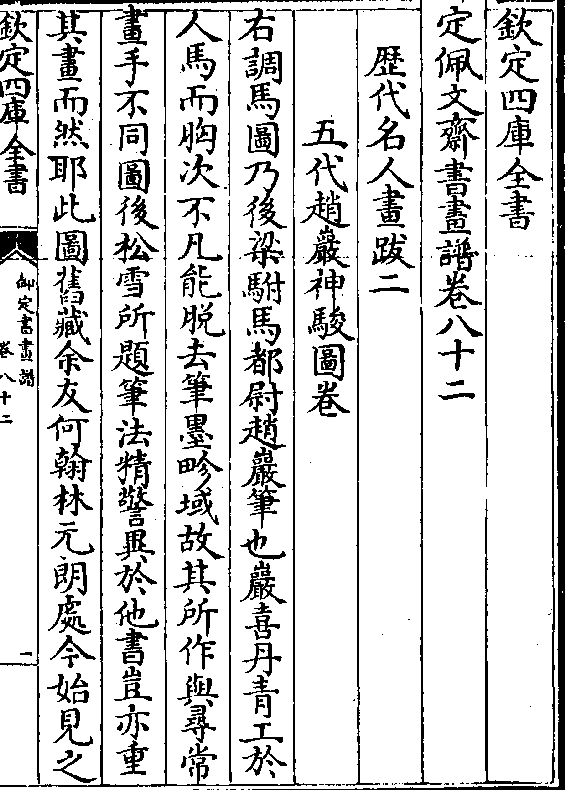 欽定四庫全書
定佩文齋書畫譜卷八十二
歴代名人畫跋二
五代趙巖神駿圖卷
右調馬圖乃後梁駙馬都尉趙巖筆也巖喜丹青工於
人馬而胸次不凡能脱去筆墨畛域故其所作與尋常
畫手不同圖後松雪所題筆法精警異於他書豈亦重
其畫而然耶此圖舊藏余友何翰林元朗處今始見之
欽定四庫全書
御定書畫譜
卷八十二
一